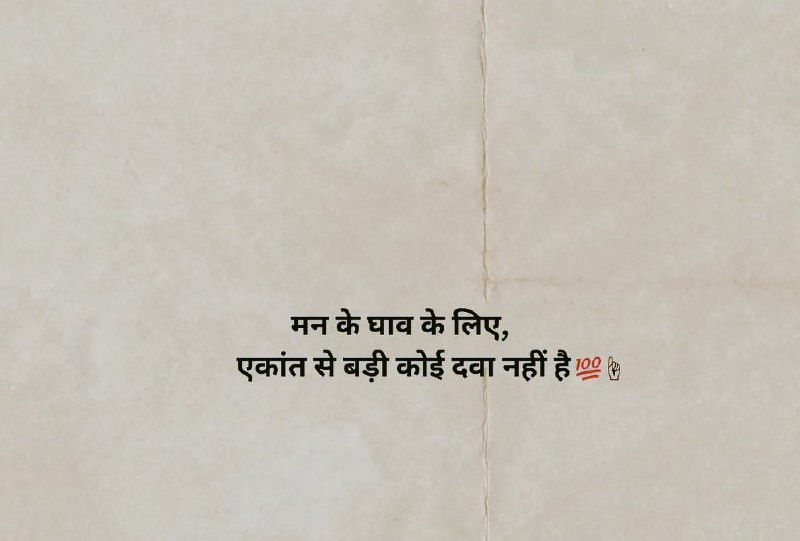 मन के घाव के लिए,
एकांत से बड़ी कोई दवा नहीं है💯☝